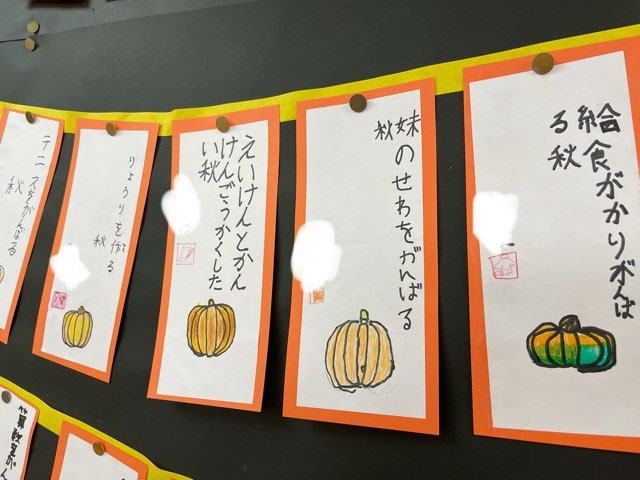 給食がかりがんば
る秋
妹のせわをがんばる
秋
えいけんとかん
けんごうかくした
い秋
りょうりを作る
秋
テニスをがんばる
秋